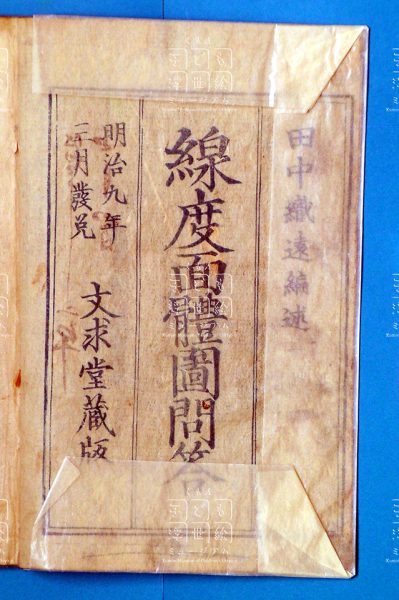 田中織遠編述
線度面體圖問答
明治九年
三月發兌
文求堂蔵版